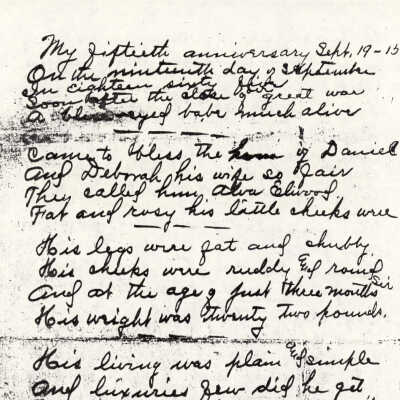 My fiftieth anniversary Sept. 19-15
On the nineteenth day of September
In eighteen sixty five
Soon after the close of great war
A blue eyed babe much alive
Came to bless the hom of Daniel
And Deborah, his wife so fair
They called him Alva Elwood,
Fat and rosy his little cheeks were
His legs were fat and chubby
His cheeks were ruddy and round
And at the age of just three months Sir
His weight was twenty two pounds.
His living was plain and simple
And luxuries few did he get